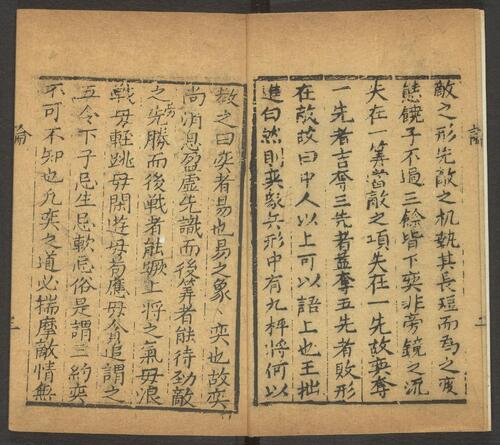 敵之形先敵之机執其長短而為之變
態饒子不過三餘皆下奕非旁鏡之流
失在一筭當敵之項失在一先故奕奪
一先者吉奪三先者益奪五先者敗形
在敵故曰中人以上可以語上也王拙
進曰然則奕家兵形中有九枰將何以
教之曰奕者易也易之象奕也故奕
尚消息盈虛先識而後筭者能待勁敵
之先勝而後戰者能蹶上將之氣毋浪
戰毋輕跳毋閑遊毋蔦應毋貪追謂之
五令下子忌生忌軟忌俗是謂三約奕
不可不知也凢奕之道必揣摩敵情無
論
二
論
二